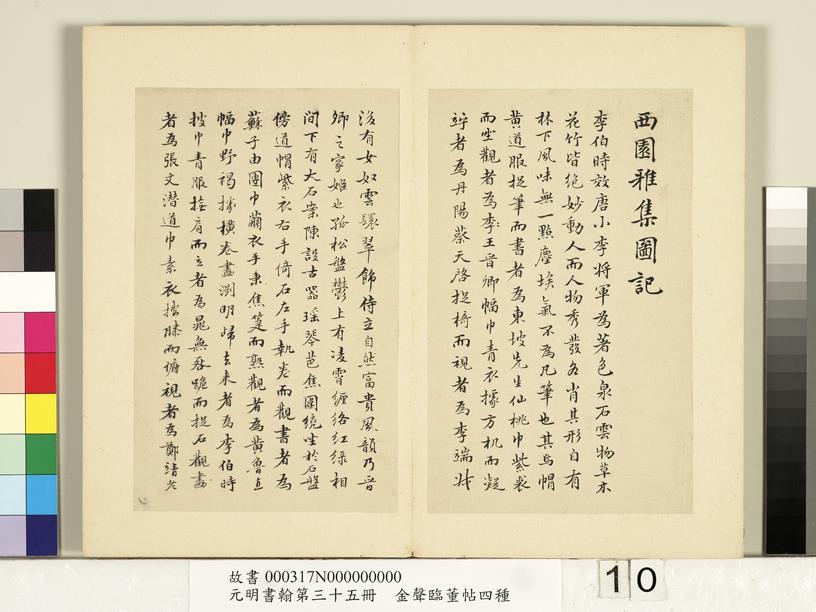 西園雅集圖記
李伯時效唐小李將軍為著色泉石雲物草木
花竹皆絶妙動人而人物秀發各肖其形自有
林下風味無一點塵埃氣不為凡筆也其烏帽
黄道服捉筆而書者為東坡先生仙桃巾紫裘
而坐觀者為李王晋卿幅巾青衣據方机而凝
竚者為丹陽蔡天啓捉椅而視者為李端叔
後有女奴雲鬟翠飾侍立自然富貴風韻乃晋
卿之家姬也孤松盤鬱上有凌霄纏絡紅緑相
間下有大石案陳設古器瑤琴芭焦圍繞坐於石盤
傍道帽紫衣右手倚石左手執卷而觀書者為
蘇子由團巾繭衣手秉焦箑而熟觀者為黄魯直
幅巾野褐據横卷畫淵明歸去来者為李伯時
披巾青服撫肩而立者為晁無咎跪而捉石觀畫
者為張文潜道巾素衣按膝而俯視者為鄭靖老
故書 000317N000000000
元明書翰第三十五冊 金聲臨董帖四種
10